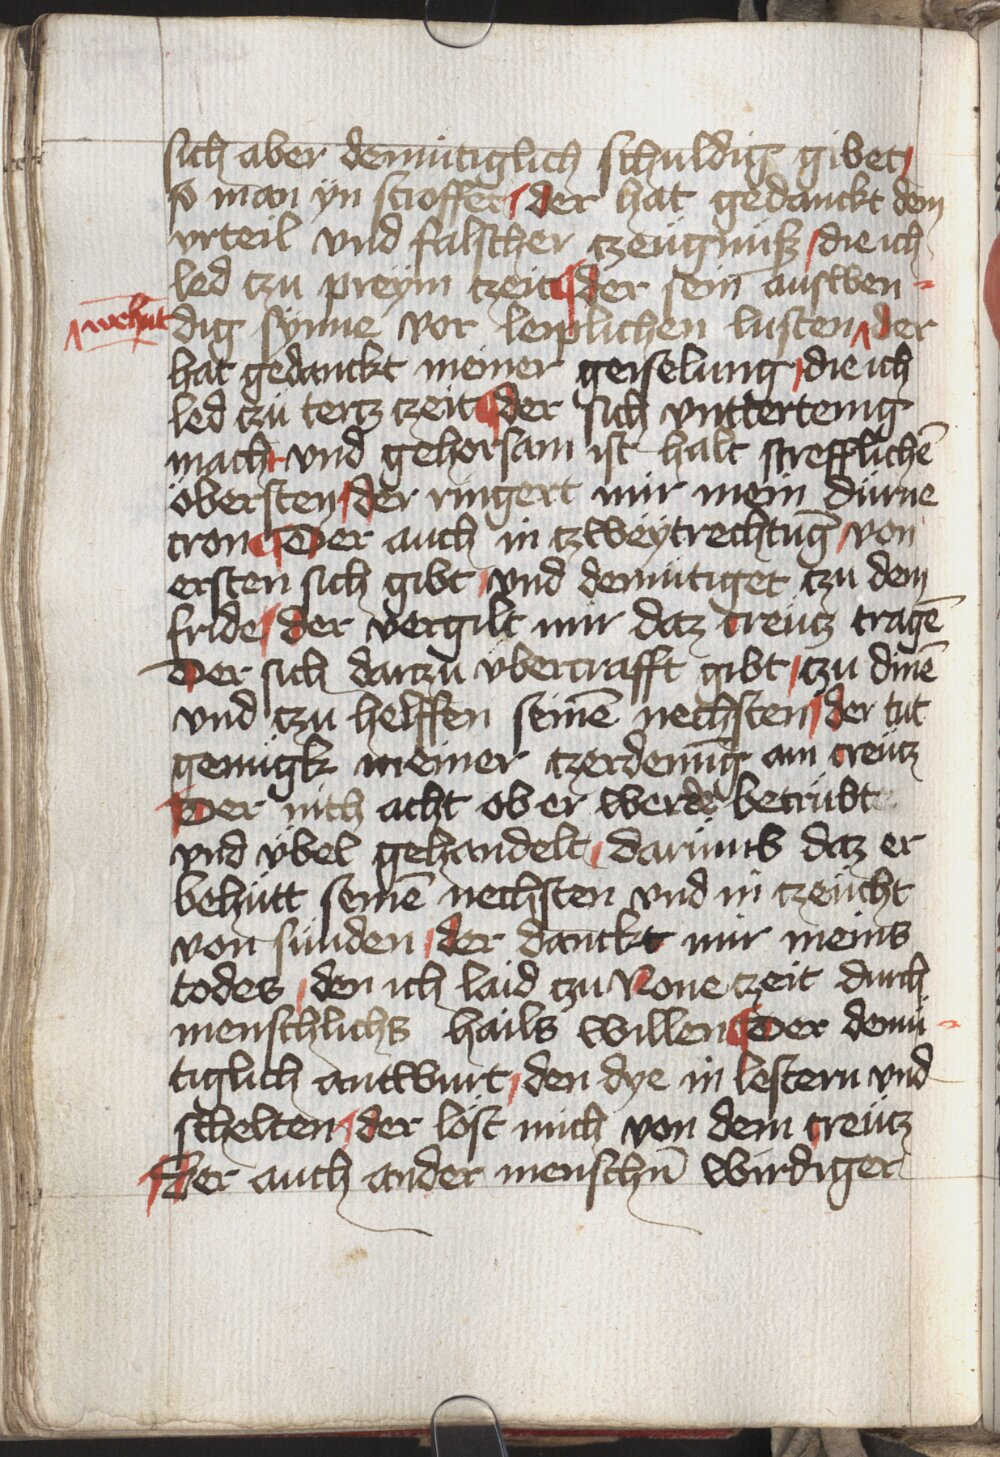 sich aber demütiglich schuldig gibet /
so man yn stroffet / der hat gedanckt dem
vrteil vnd falscher tzeügnüß / die ich
led tzu preym tzeit ¶ der sein auswen-
dig synne vor leiplichen lusten ^ der
hat gedanckt meiner geiselung / die ich
led tzu tertz tzeit ¶ der sich vnttertenig
macht vnd gehorsam ist halt strefflichē
öbersten / der ringert mir mein dürne
cron ¶ Der auch in tzweytrechtūg / von
ersten sich gibt / vnd demütiget tzu dem
fride / der vergilt mir daz creütz tragē
Der sich dartzu vbercrafft gibt / tzu dinē
vnd tzu helffen seinē nechsten / der tut
genügk meiner tzerdenūg am creütz
Der nich acht ob er werde betrübt
vnd vbel gehandelt / darümb daz er
behütt seinē nechsten vnd in tzeücht
von sünden / der danckt mir meins
todes / den ich laid tzu None tzeit durch
menschlichs hails willen ¶ Der demü-
tiglich antwurt / den dye in lestern vnd
schelten / der löst mich von dem creütz
Der auch ander menschn̄ wirdiger